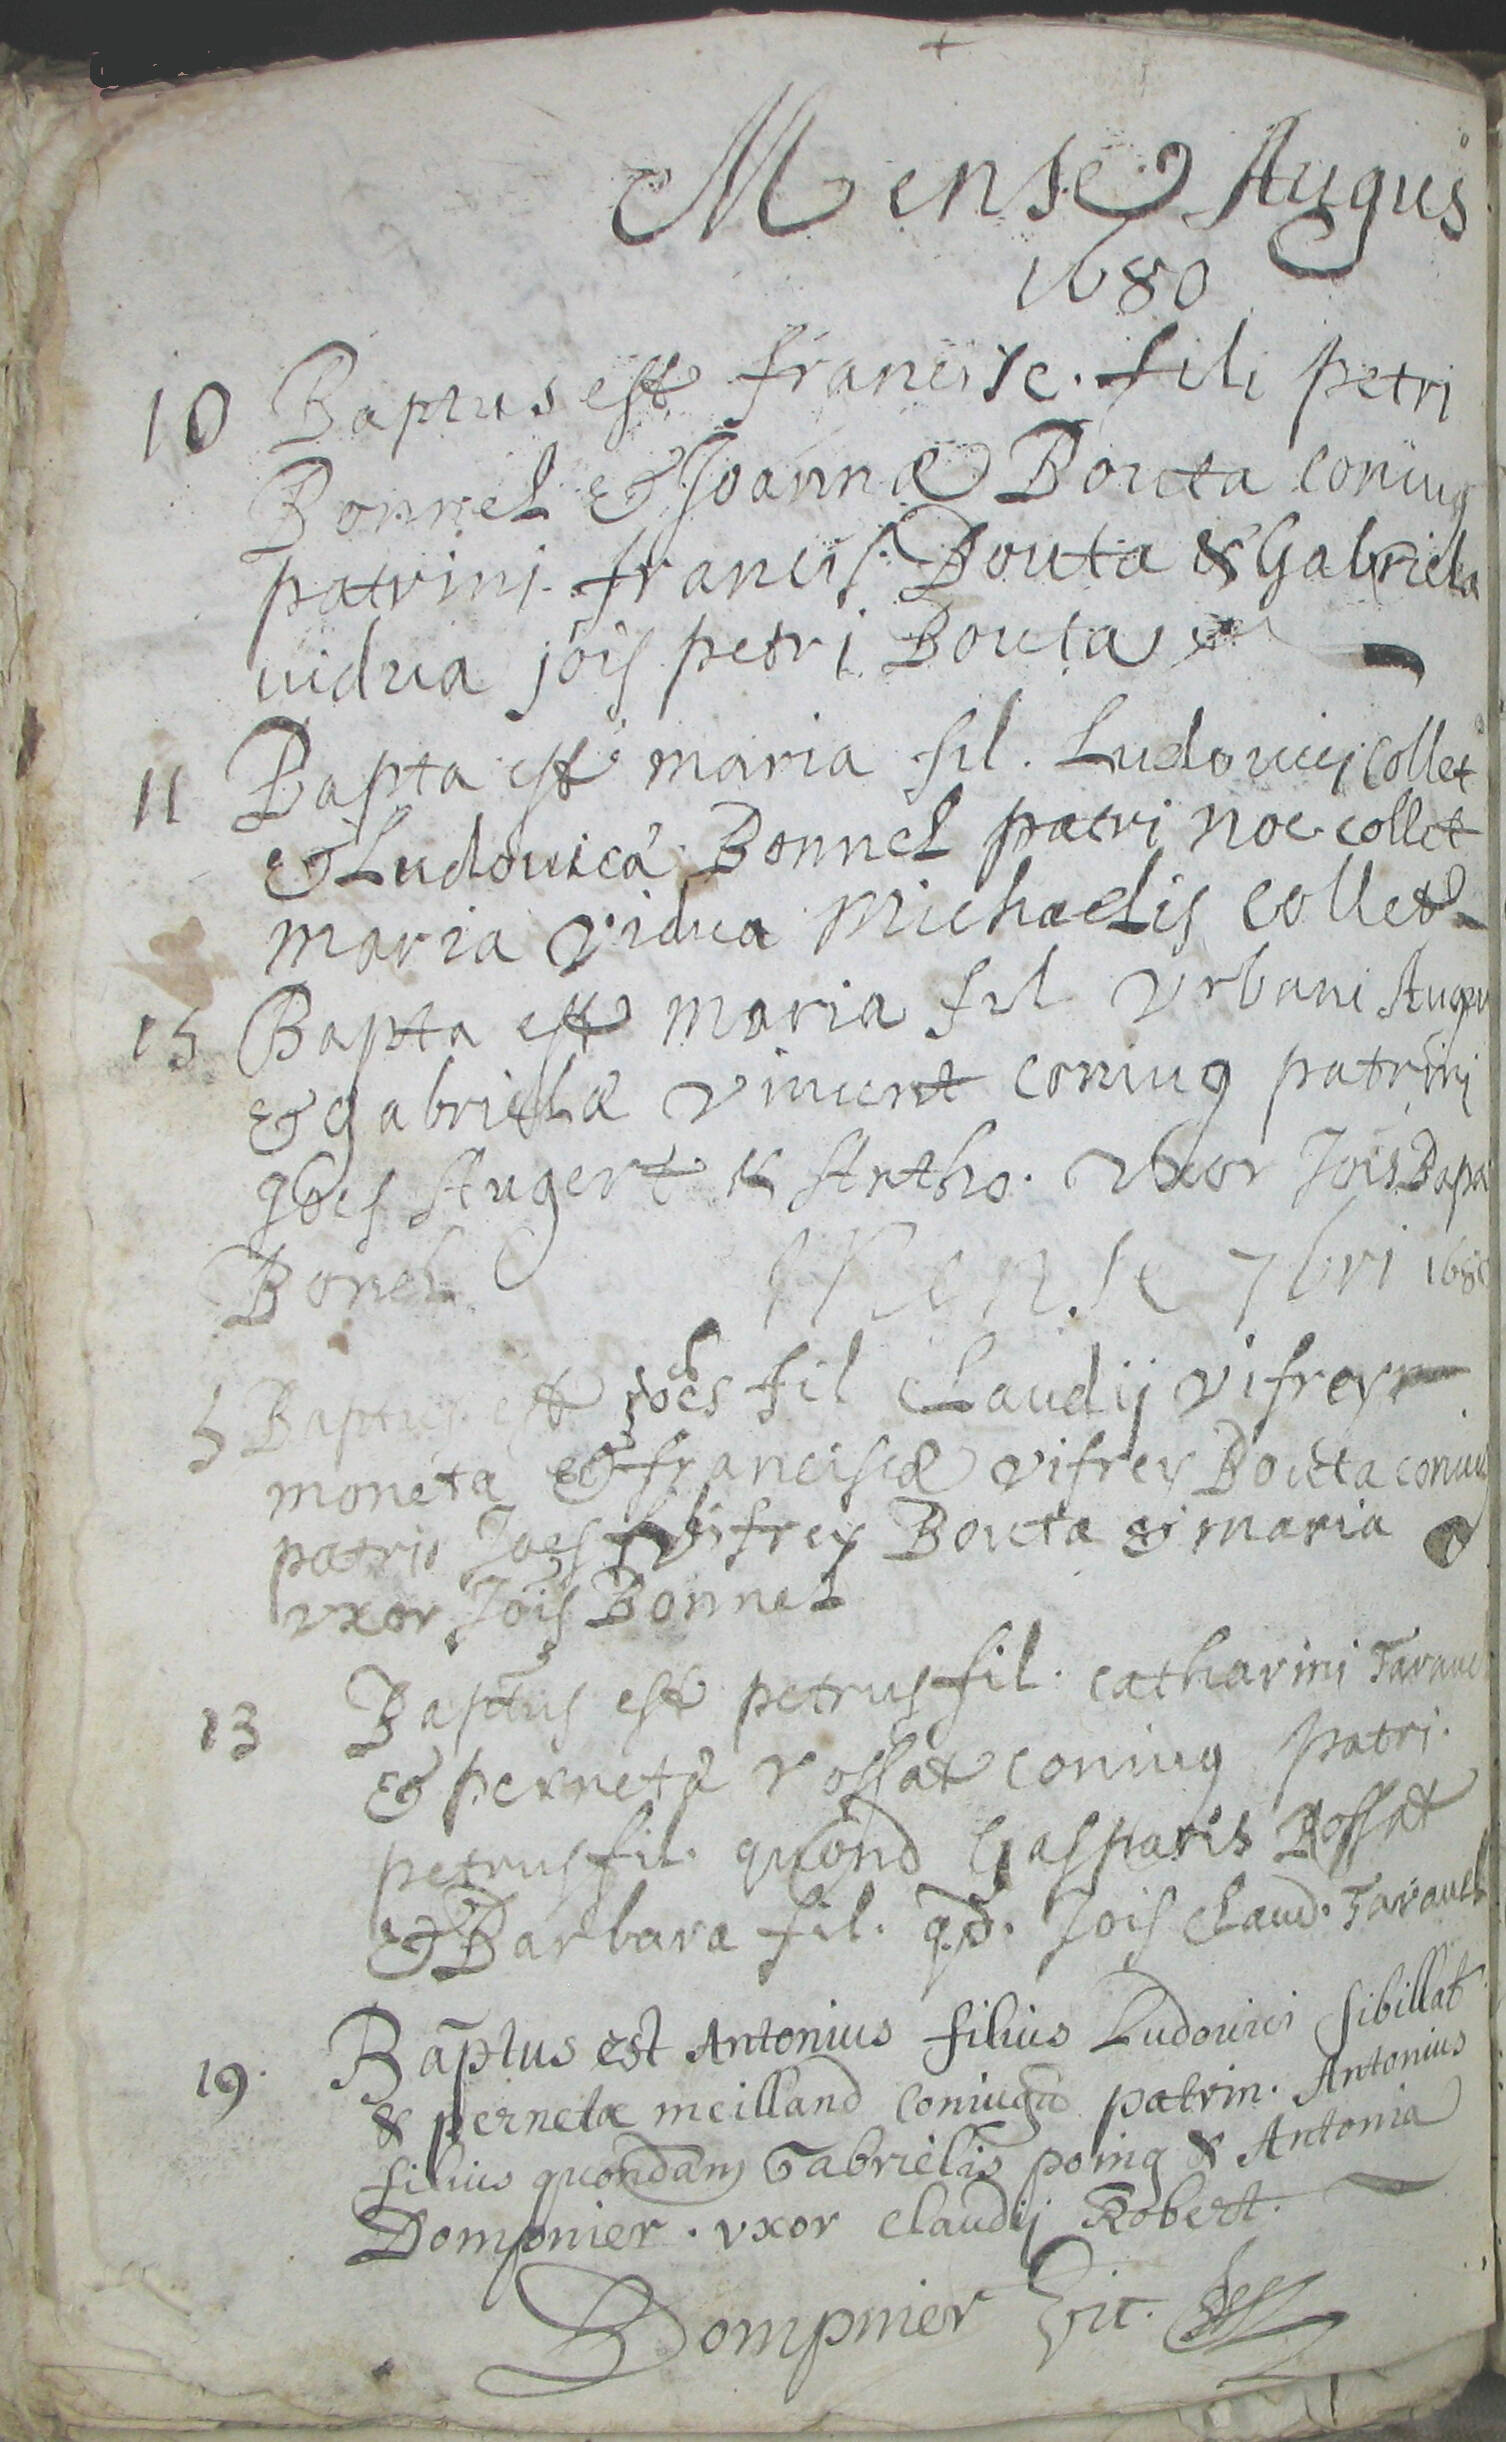 Mense Augus
1680
10 Baptus est francisc. fili petri
Bonnel & Joannæ Bouta coniug
patrini francis. Bouta & Gabriela
uidua jois petri Bouta
11 Bapta est maria fil. Ludouicj Collet
& Ludouica Bonnel patri noe collet
maria vidua Michaelis Collet
15 Bapta est maria fil Vrbani Auger
& gabrielæ vincent coniug patrini
joes Augert & Antho. vxor Jois Bapa
Bonel Mense 7bri 1680
5 Baptus est Joes fil Claudij vifrey
moneta & franciscæ vifrey Bouta coniug
patri Joes vifrey Bouta & maria
vxor Jois Bonnel
13 Baptus est petrus fil. catharini Tarauel
& pernetæ rossat coniug patri.
petrus fil. quond Gasparis Rossat
& Barbara fil. qd. Jois Claud. Tarauel
19. Baptus est Antonius filius Ludouici sibillat
& pernetæ meilland coniugu patrin. Antonius
filius quondam Gabrielis poing & Antonia
Dompnier. vxor claudij Robert.
Dompnier Vic.